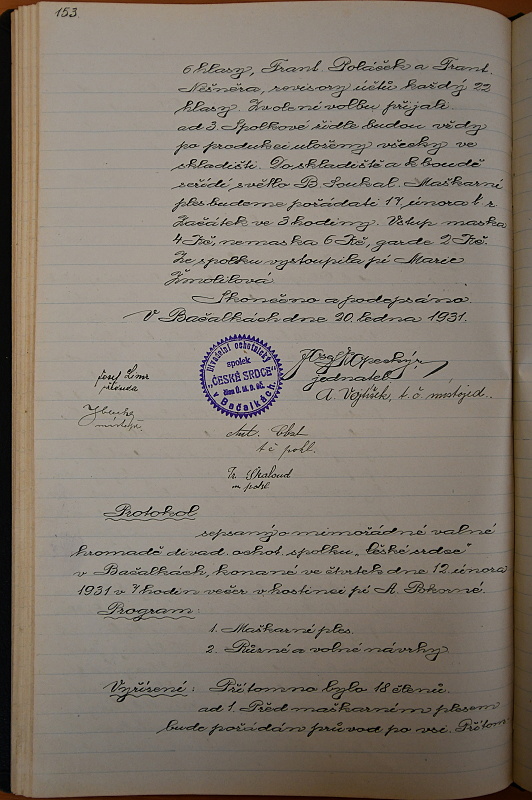 153
6 hlasy, Frant. Poláček a Frant.
Nešněra, revisory účtů každý 22
hlasy. Zvolení volbu přijali.
ad 3. Spolkové židle budou vždy
po produkci uloženy všecky ve
skladišti. Do skladiště a k boudě
seřídí světlo B. Soukal. Maškarní
ples budeme pořádati 17. února t. r.
Začátek ve 3 hodiny. Vstup maska
4 Kč, nemaska 6 Kč, garde 2 Kč.
Ze spolku vystoupila pí Marie
Zmolilová.
Skončeno a podepsáno.
V Bačalkách dne 20. ledna 1931.
Divadelní ochotnický
spolek
"ČESKÉ SRDCE"
člen Ú. M. D. Č.
v Bačalkách.
Josef
jednatel
A. Vojtíšek, t. č. místojed.
Ant.
t č pokl.
Fr. Skaloud
m pokl
Protokol
sepsaný o mimořádné valné
hromadě divad. ochot. spolku „České srdce"
v Bačalkách, konané ve čtvrtek dne 12. února
1931 v 7 hodin večer v hostinci pí A. Pokorné.
Program:
1. Maškarní ples.
2. Různé a volné návrhy
Vyřízení: Přítomno bylo 18 členů.
ad 1. Před maškarním plesem
bude pořádán průvod po vsi. Přítom-